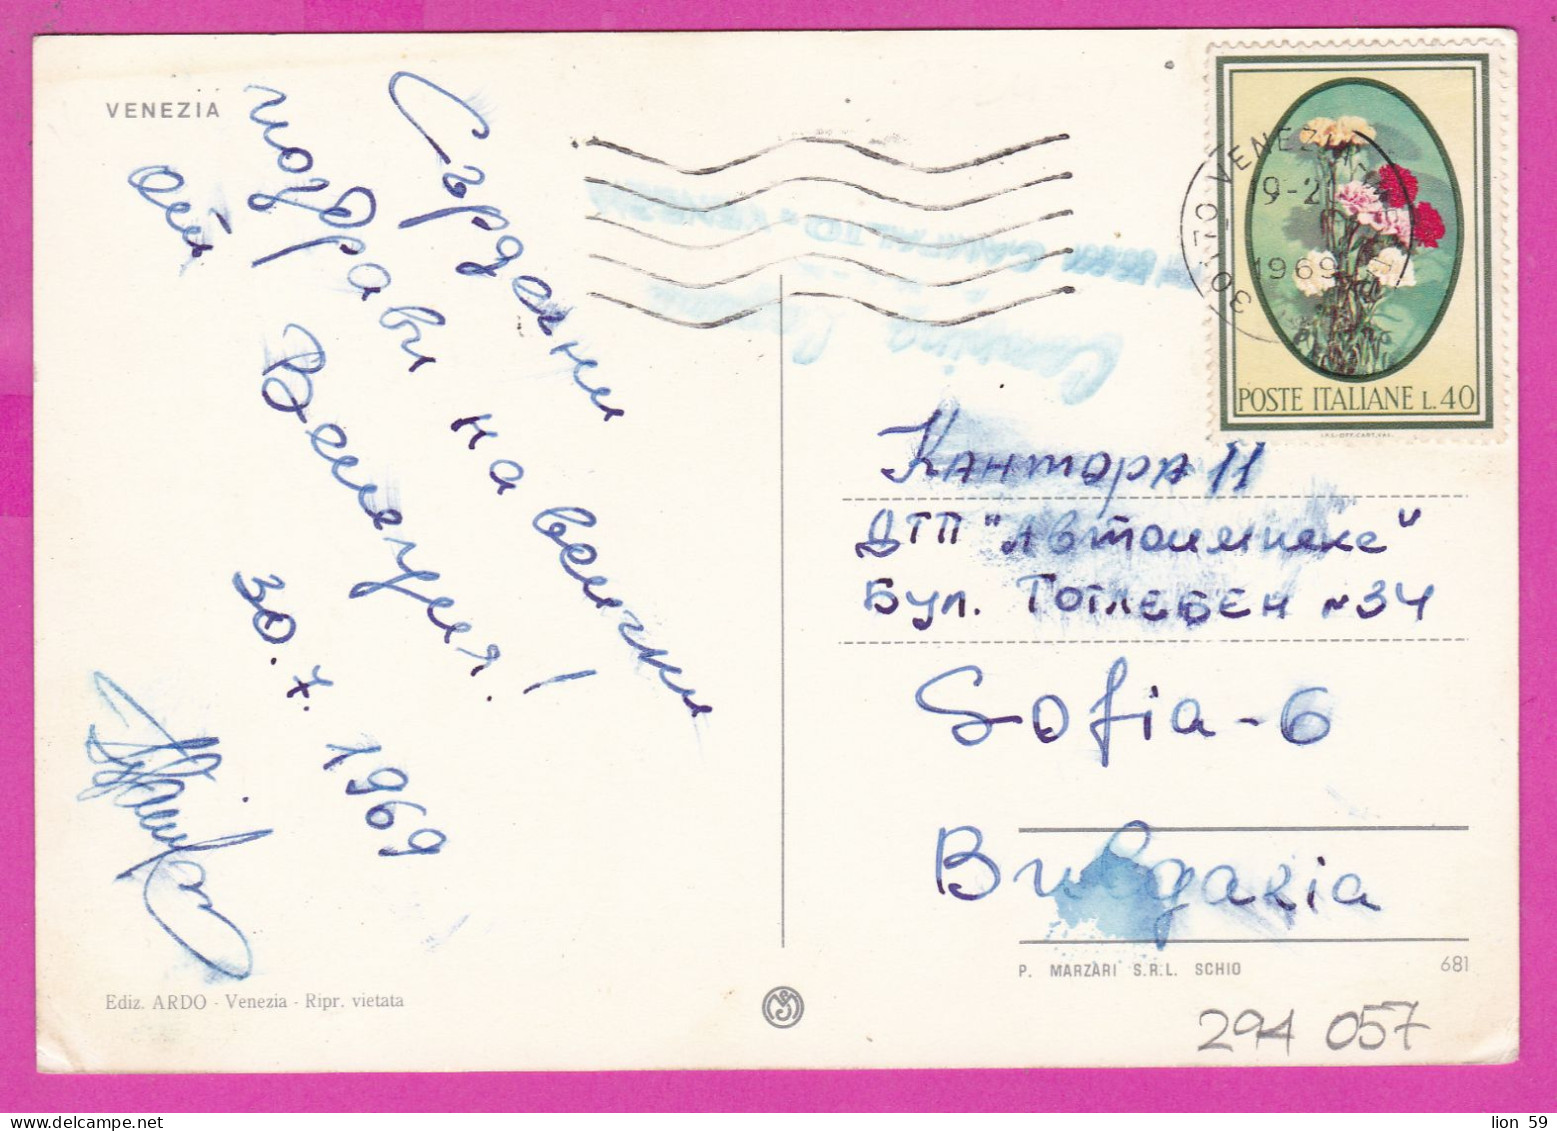 VENEZIA
Сърдечни
поздрави на всички
от
Венеция!
30.7.1969
VENEZIA
19-2
30-7-
1969
POSTE ITALIANE L. 40
I.P.S.-OFF. CART. VAL.
Кантора 11
ДТП "Автоимпекс"
Бул. Тотлебен №34
Sofia-6
Bulgaria
P. MARZARI S.R.L. SCHIO
681
Ediz. ARDO - Venezia - Ripr. vietata
294 057
lion 59